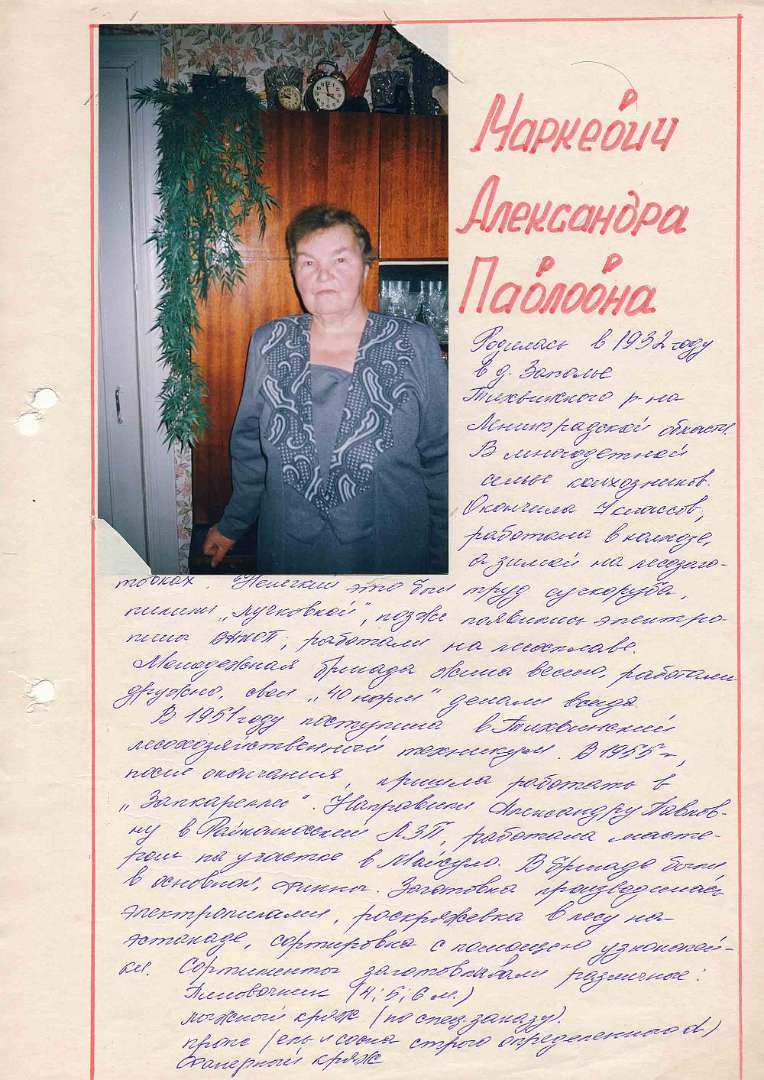 Маркевич
Александра
Павловна
Родилась в 1932 году
в д. Заполье
Тихвинского р-на
Ленинградской области.
В многодетной
семье колхозников.
Окончила 7 классов,
работала в колхозе,
а зимой на лесозаго-
товках. Нелегкий это был труд сучкоруба,
пилили „лучковкой", позже появились электро-
пилы ВАКОПП, работали на лесосплаве.
Молодежная бригада жила весело, работали
дружно, свои „40 норм" делали всегда.
В 1951 году поступила в Тихвинский
лесохозяйственный техникум. В 1955 г,
после окончания, пришла работать в
„Запкареллес". Направили Александру Павлов-
ну в Райконкосский ЛЗП, работала масте-
ром на участке в Майсула. В бригаде были
в основном, финны. Заготовка производилась
электропилами, раскряжевка в лесу на
эстакаде, сортировка с помощью узкоколей-
ки. Сортименты заготовливали различные:
Пиловочник (4; 5; 6 м.)
лыжный кряж (по спец. заказу).
пропс (ель и сосна строго определенного d)
Фанерный кряж